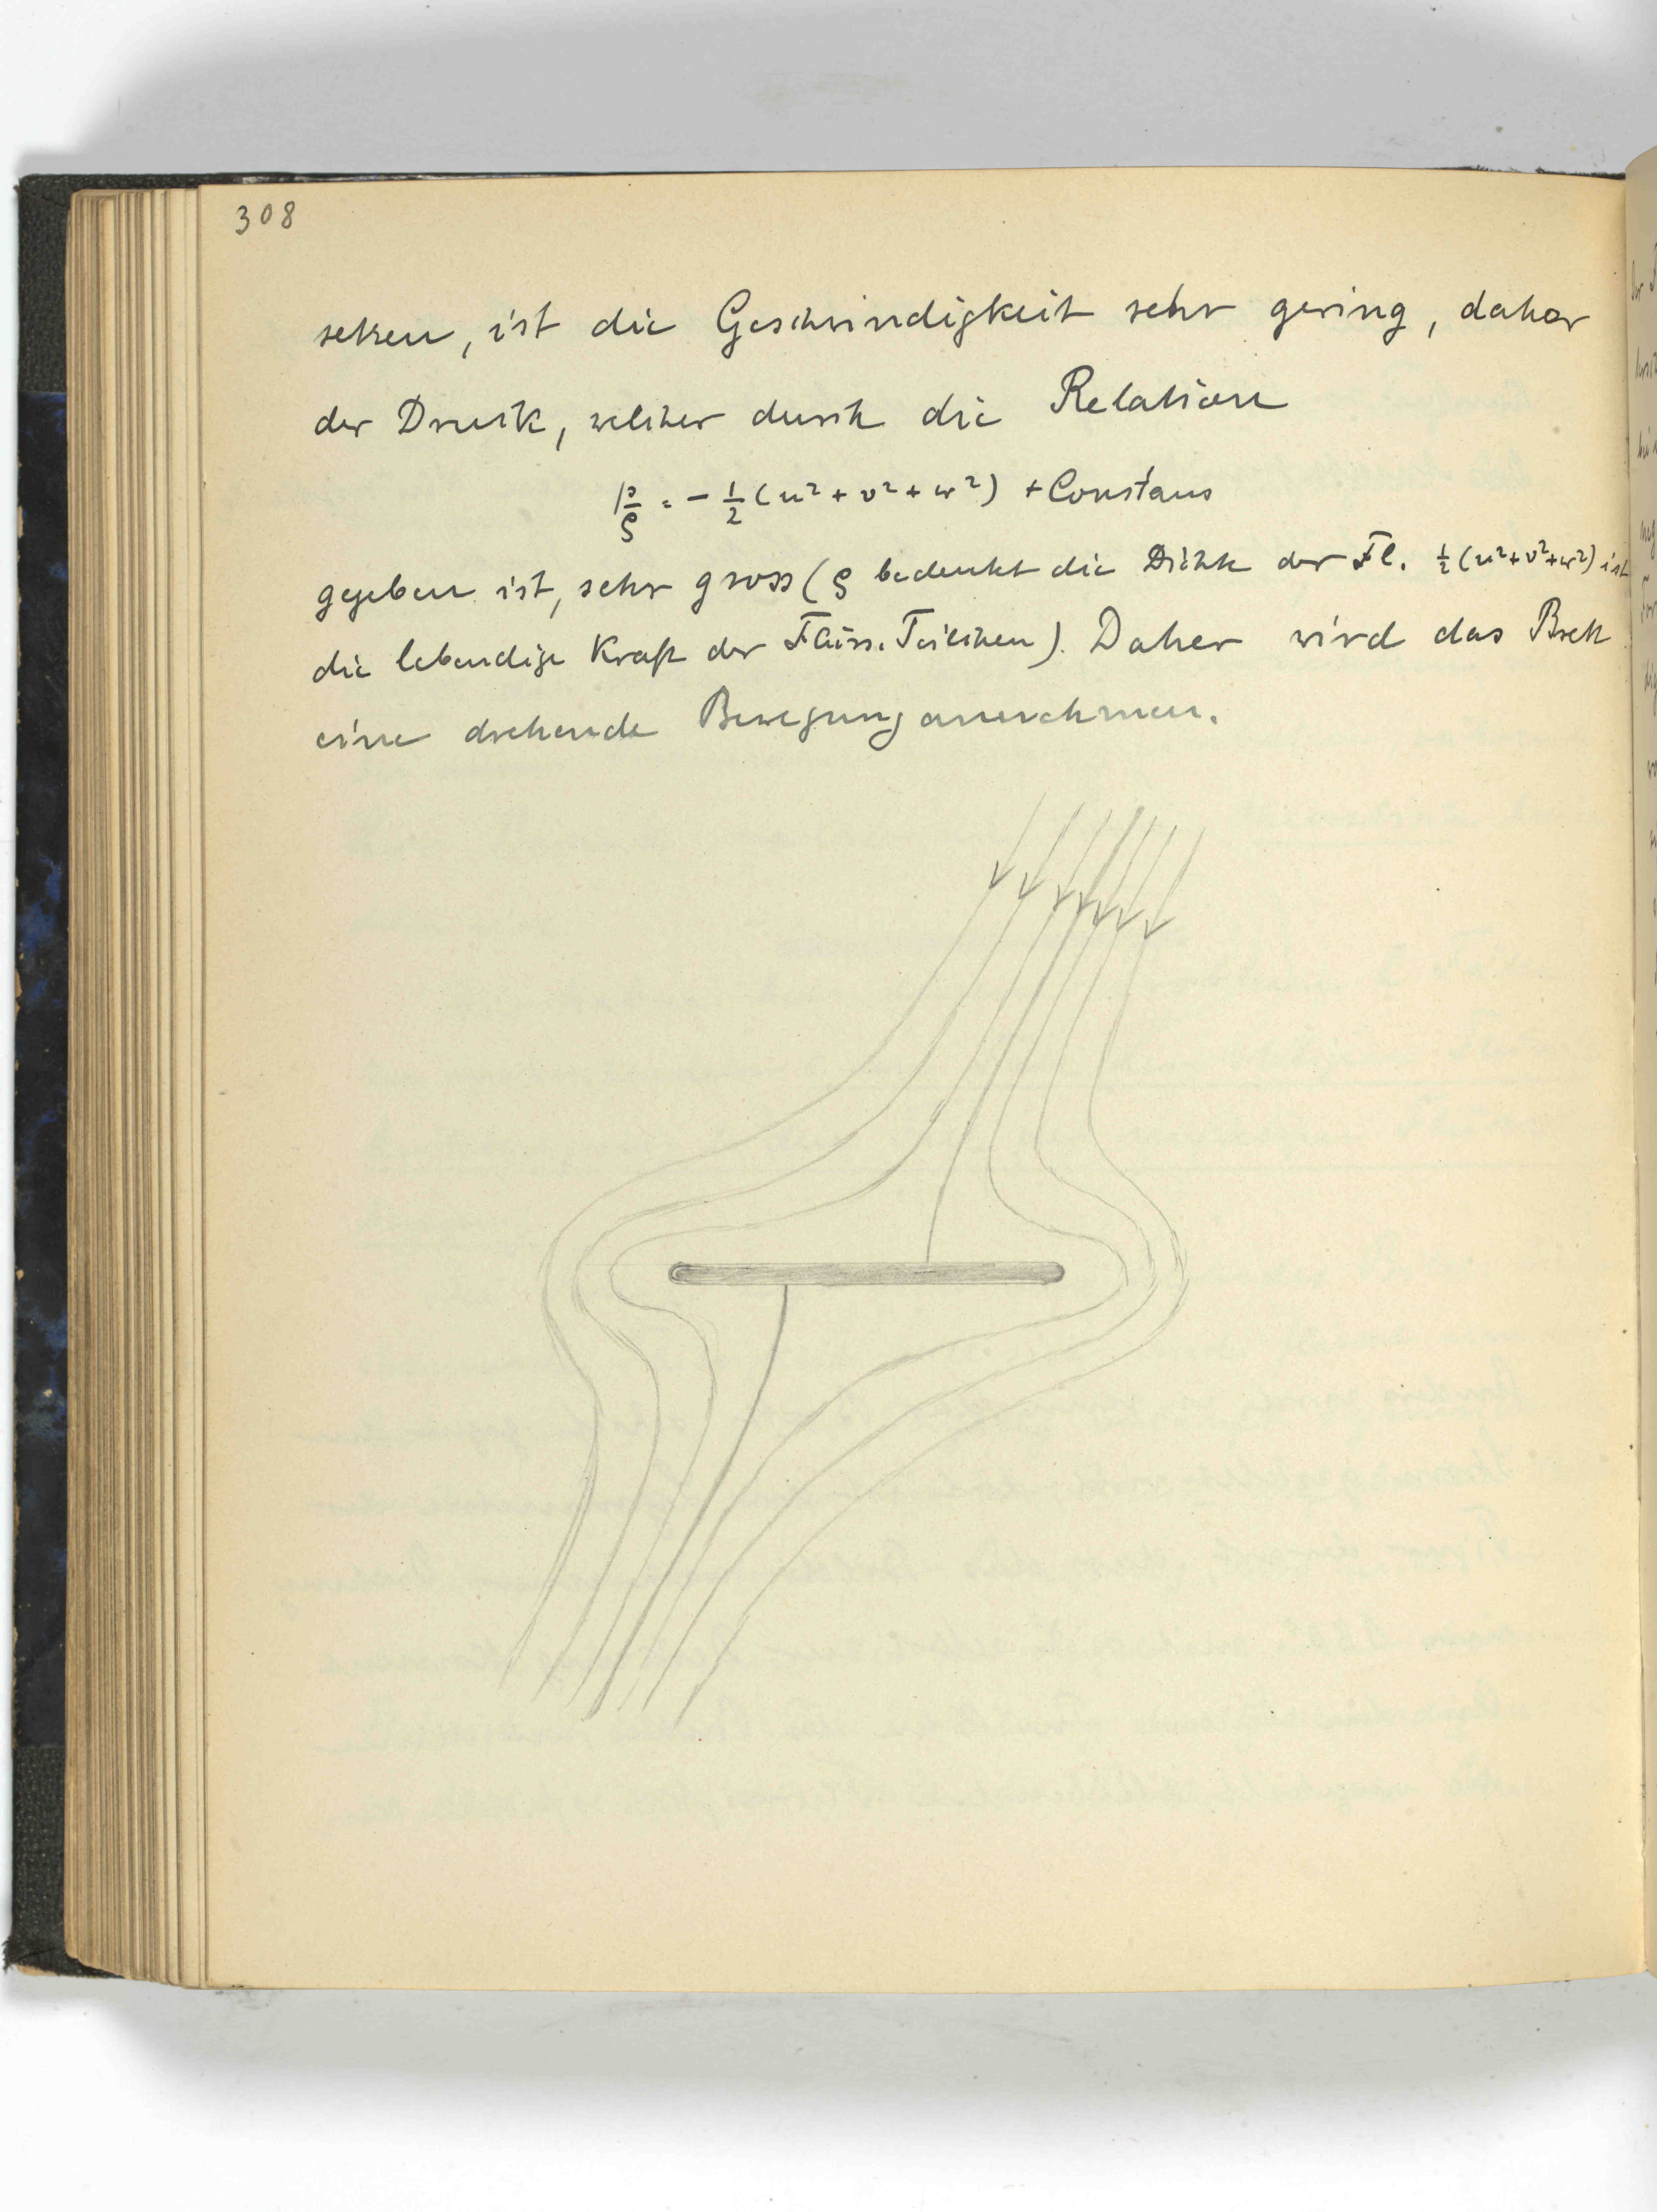 308
setzen, ist die Geschwindigkeit sehr gering, daher
der Druck, welcher durch die Relation
p/ρ = - 1/2 (u² + v² + w²) + Constans
gegeben ist, sehr gross (ρ bedeutet die Dichte der Fl. 1/2 (u²+v²+w²) ist
die lebendige Kraft der Flüss. Teilchen). Daher wird das Brett
eine drehende Bewegung annehmen.